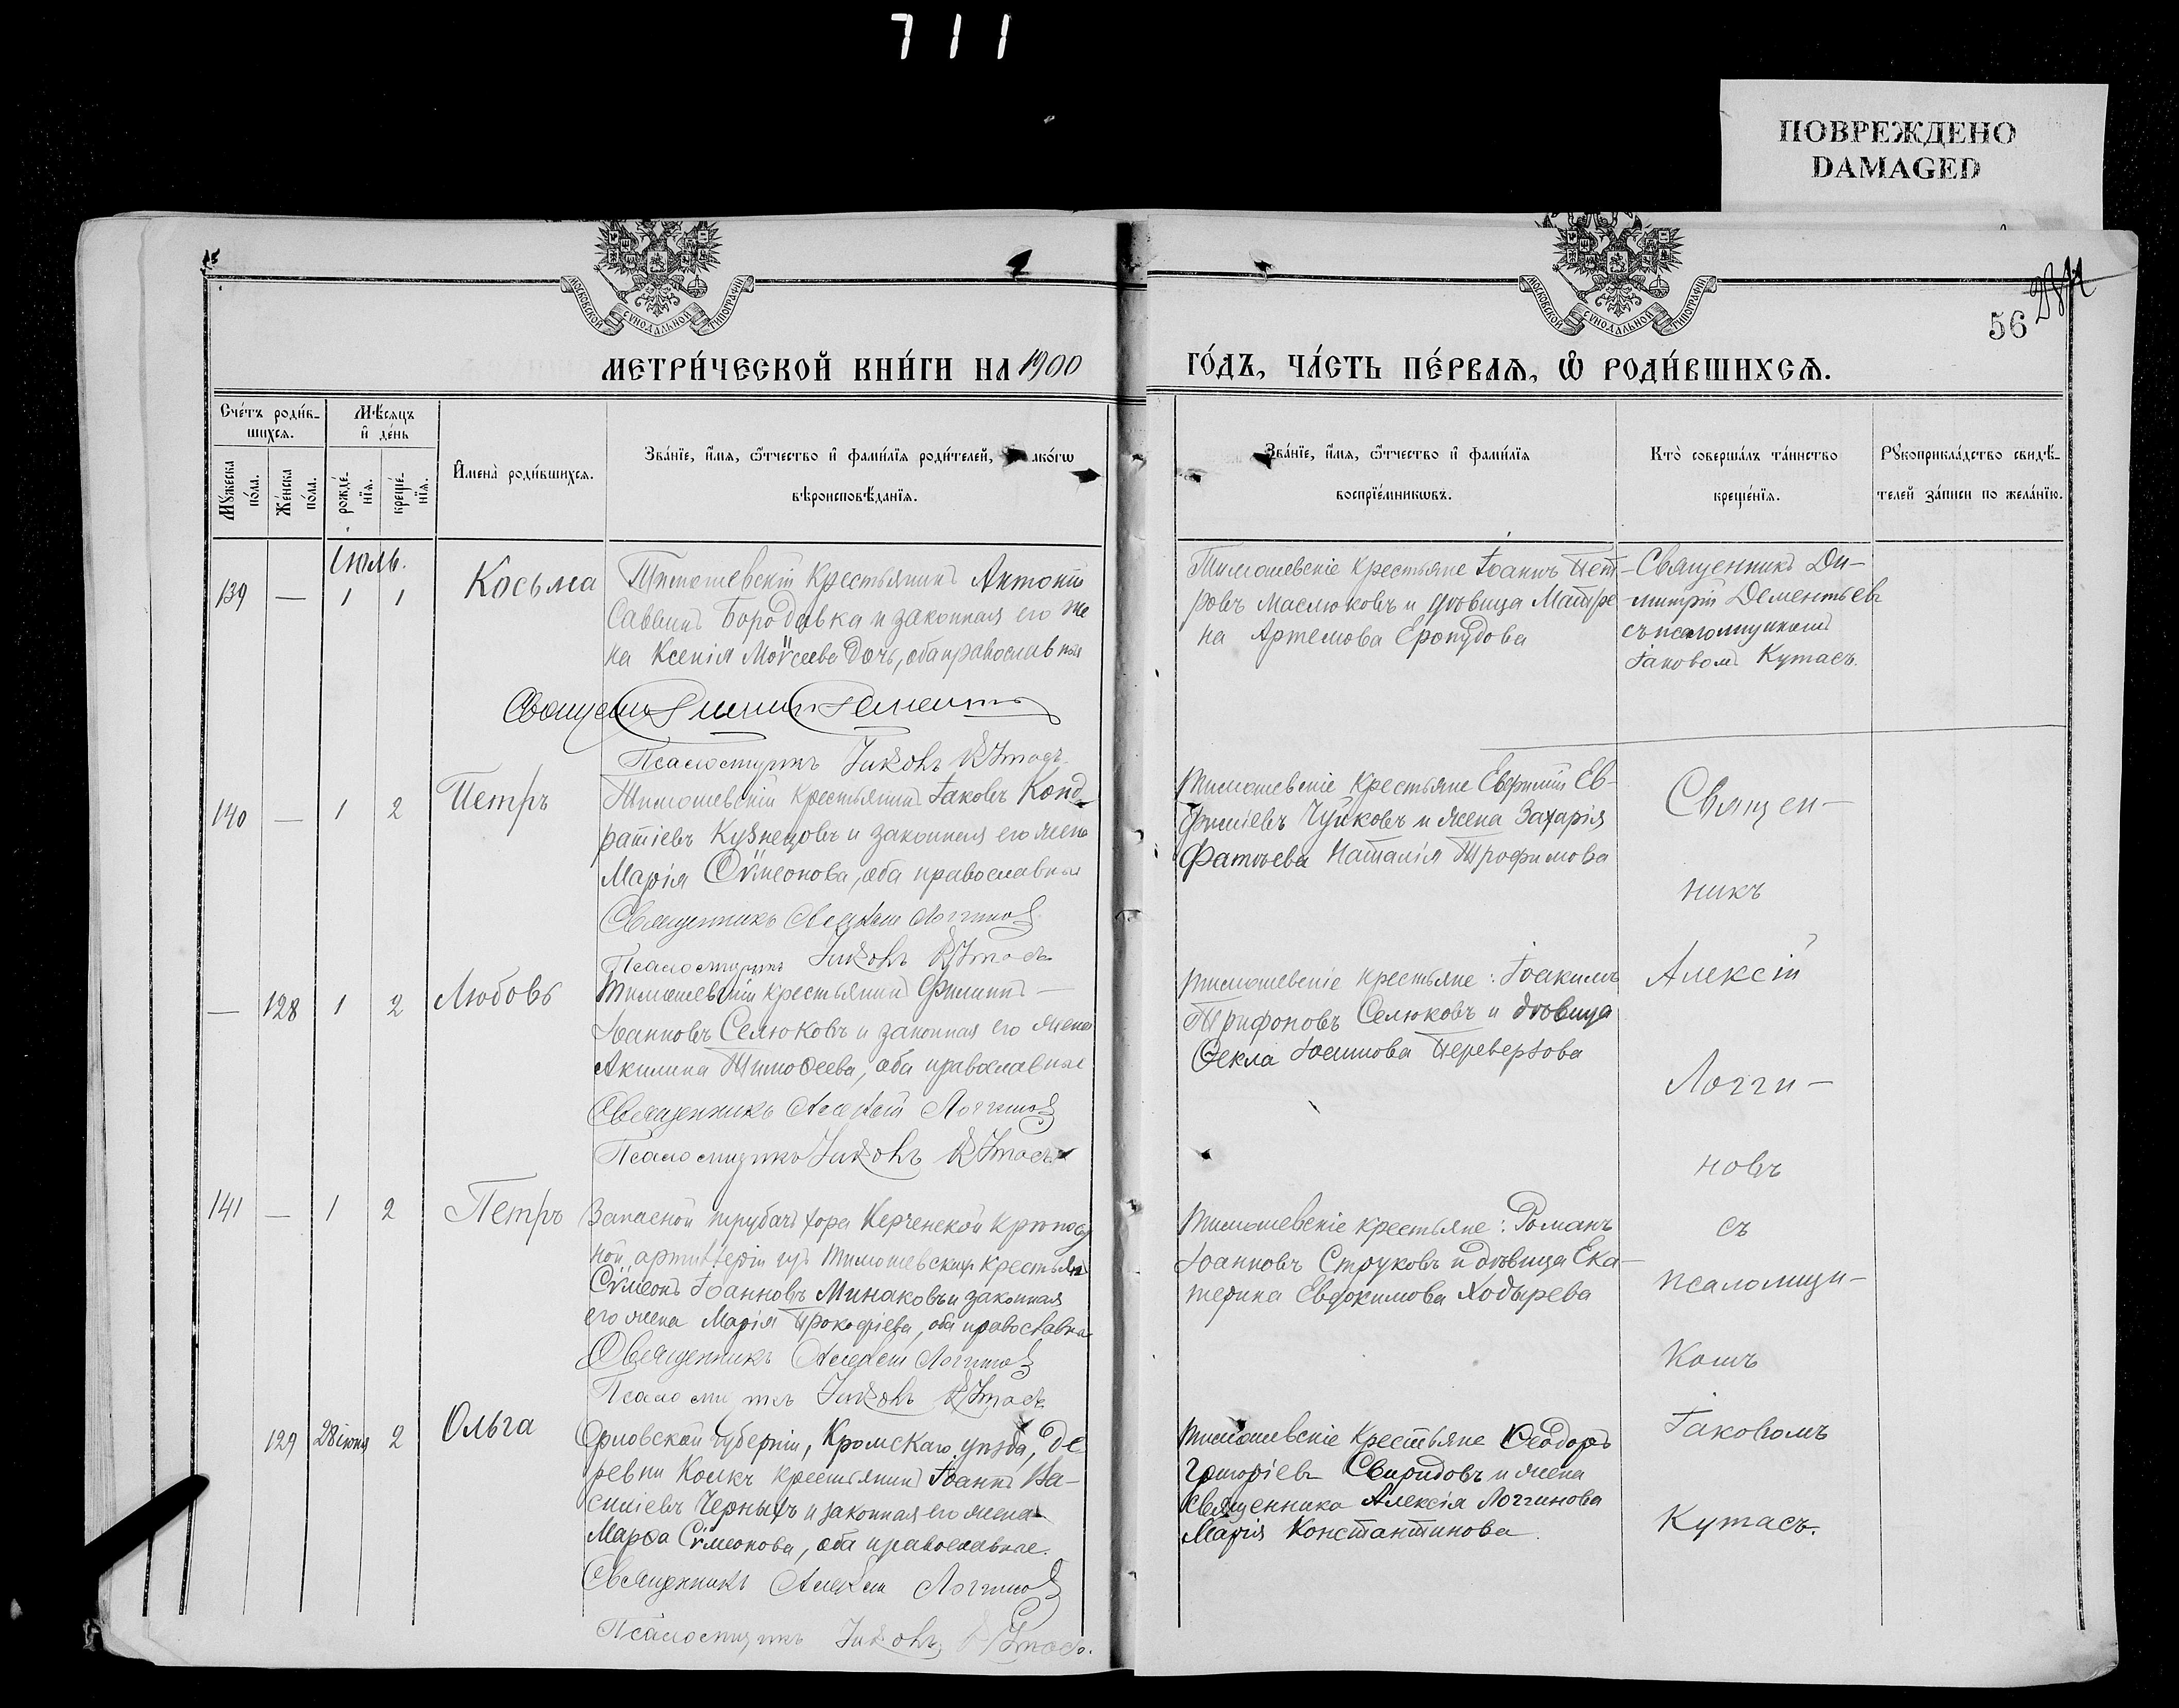 711
ПОВРЕЖДЕНО
DAMAGED
МОСКОВСКОЙ СУНОДАЛЬНОЙ ТИПОГРАФІИ
МОСКОВСКОЙ СУНОДАЛЬНОЙ ТИПОГРАФІИ
56
МЕТРИ́ЧЕСКОЙ КНИ́ГИ НА 1900
ГО́ДЪ, ЧА́СТЬ ПЕ́РВАѦ, Ѡ҆ РОДИ́ВШИХСѦ.
Сче́тъ роди́в-
шихсѧ.
Мѣ́сѧцъ
и҆ де́нь
Мꙋ́жеска
по́ла.
Же́нска
по́ла.
рожде́-
нїѧ.
креще́-
нїѧ.
И҆мена̀ роди́вшихсѧ.
Зва́нїе, и҆́мѧ, ѻ҆́тчество и҆ фами́лїѧ роди́телей, како́гѡ
вѣроисповѣ́данїѧ.
Зва́нїе, и҆́мѧ, ѻ҆́тчество и҆ фами́лїѧ
воспрїе́мникѡвъ.
Кто̀ соверша́лъ та́инство
креще́нїѧ.
Рꙋкоприкла́дство свидѣ́-
телей за́писи по жела́нїю.
Іюль.
139 — 1 1 Косьма
Тимошевскій крестьянинъ Антоній
Саввинъ Бородавка и законная его же
на Ксенія Моѵсеева дочь, оба православные
Псаломщикъ Іаковъ Кутасъ
Тимошевскіе крестьяне Іоаннъ Пет-
ровъ Маслюковъ и дѣвица Матре
на Артемова Еропудова
Священникъ Ди-
митрій Дементьевъ
съ псаломщикомъ
Іаковомъ Кутасъ.
140 — 1 2 Петръ
Тимошевскій крестьянинъ Іаковъ Конд-
ратіевъ Кузнецовъ и законная его жена
Марія Сѵмеонова, оба православные
Священникъ Алексій Логгинов
Псаломщикъ Іаковъ Кутасъ
Тимошевскіе крестьяне Евфимій Ев-
фиміевъ Чуйковъ и жена Захарія
Фатѣева Наталія Трофимова
— 128 1 2 Любовь
Тимошевскій крестьянинъ Филиппъ —
Іоанновъ Селюковъ и законная его жена
Акилина Тимоѳеева, оба православные
Священникъ Алексій Логгинов
Псаломщикъ Іаковъ Кутасъ
Тимошевскіе крестьяне: Іоакимъ
Трифоновъ Селюковъ и дѣвица
Ѳекла Іоаннова Перевертова
141 — 1 2 Петръ
Запасной трубачъ хора Керченской крѣпост
ной артиллеріи изъ Тимошевскихъ крестьянъ
Сѵмеонъ Іоанновъ Минаковъ и законная
его жена Марія Прокофіева, оба православные
Священникъ Алексій Логгинов
Псаломщикъ Іаковъ Кутасъ
Тимошевскіе крестьяне: Романъ
Іоанновъ Струковъ и дѣвица Ека-
терина Евдокимова Ходырева
129 28 іюня 2 Ольга
Орловской губерніи, Кромскаго уѣзда, де
ревни крестьянинъ Іоаннъ Ва-
силіевъ Черныхъ и законная его жена
Марѳа Сѵмеонова, оба православные.
Священникъ Алексій Логгинов
Псаломщикъ Іаковъ Кутасъ.
Тимошевскіе крестьяне Ѳеодоръ
Григоріевъ Свиридовъ и жена
священника Алексія Логгинова
Марія Константинова.
Священ-
никъ
Алексій
Логги-
новъ
съ
псаломщи-
комъ
Іаковомъ
Кутасъ.